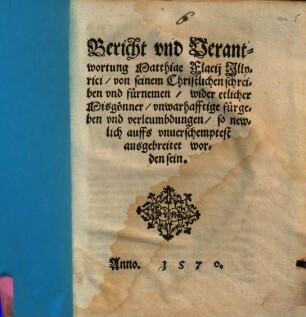 6
Bericht vnd Verant-
wortung Matthiae Flacij Jlly-
rici / von seinem Christlichen schrei-
ben vnd fürnemen / wider etlicher
Misgönner / vnwarhafftige fürge-
ben vnd verleumbdungen / so new-
lich auffs vnuerschemptest
ausgebreitet wor-
den sein.
Anno. 1570.